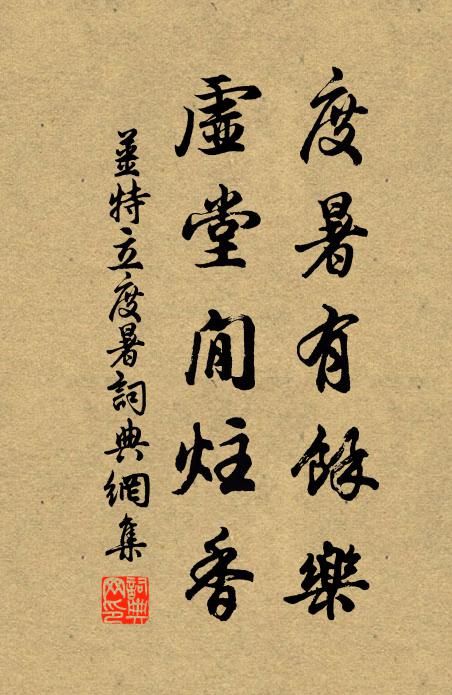 度暑有餘樂
虛堂閒炷香
姜特立度暑詞典網集
詞典網印